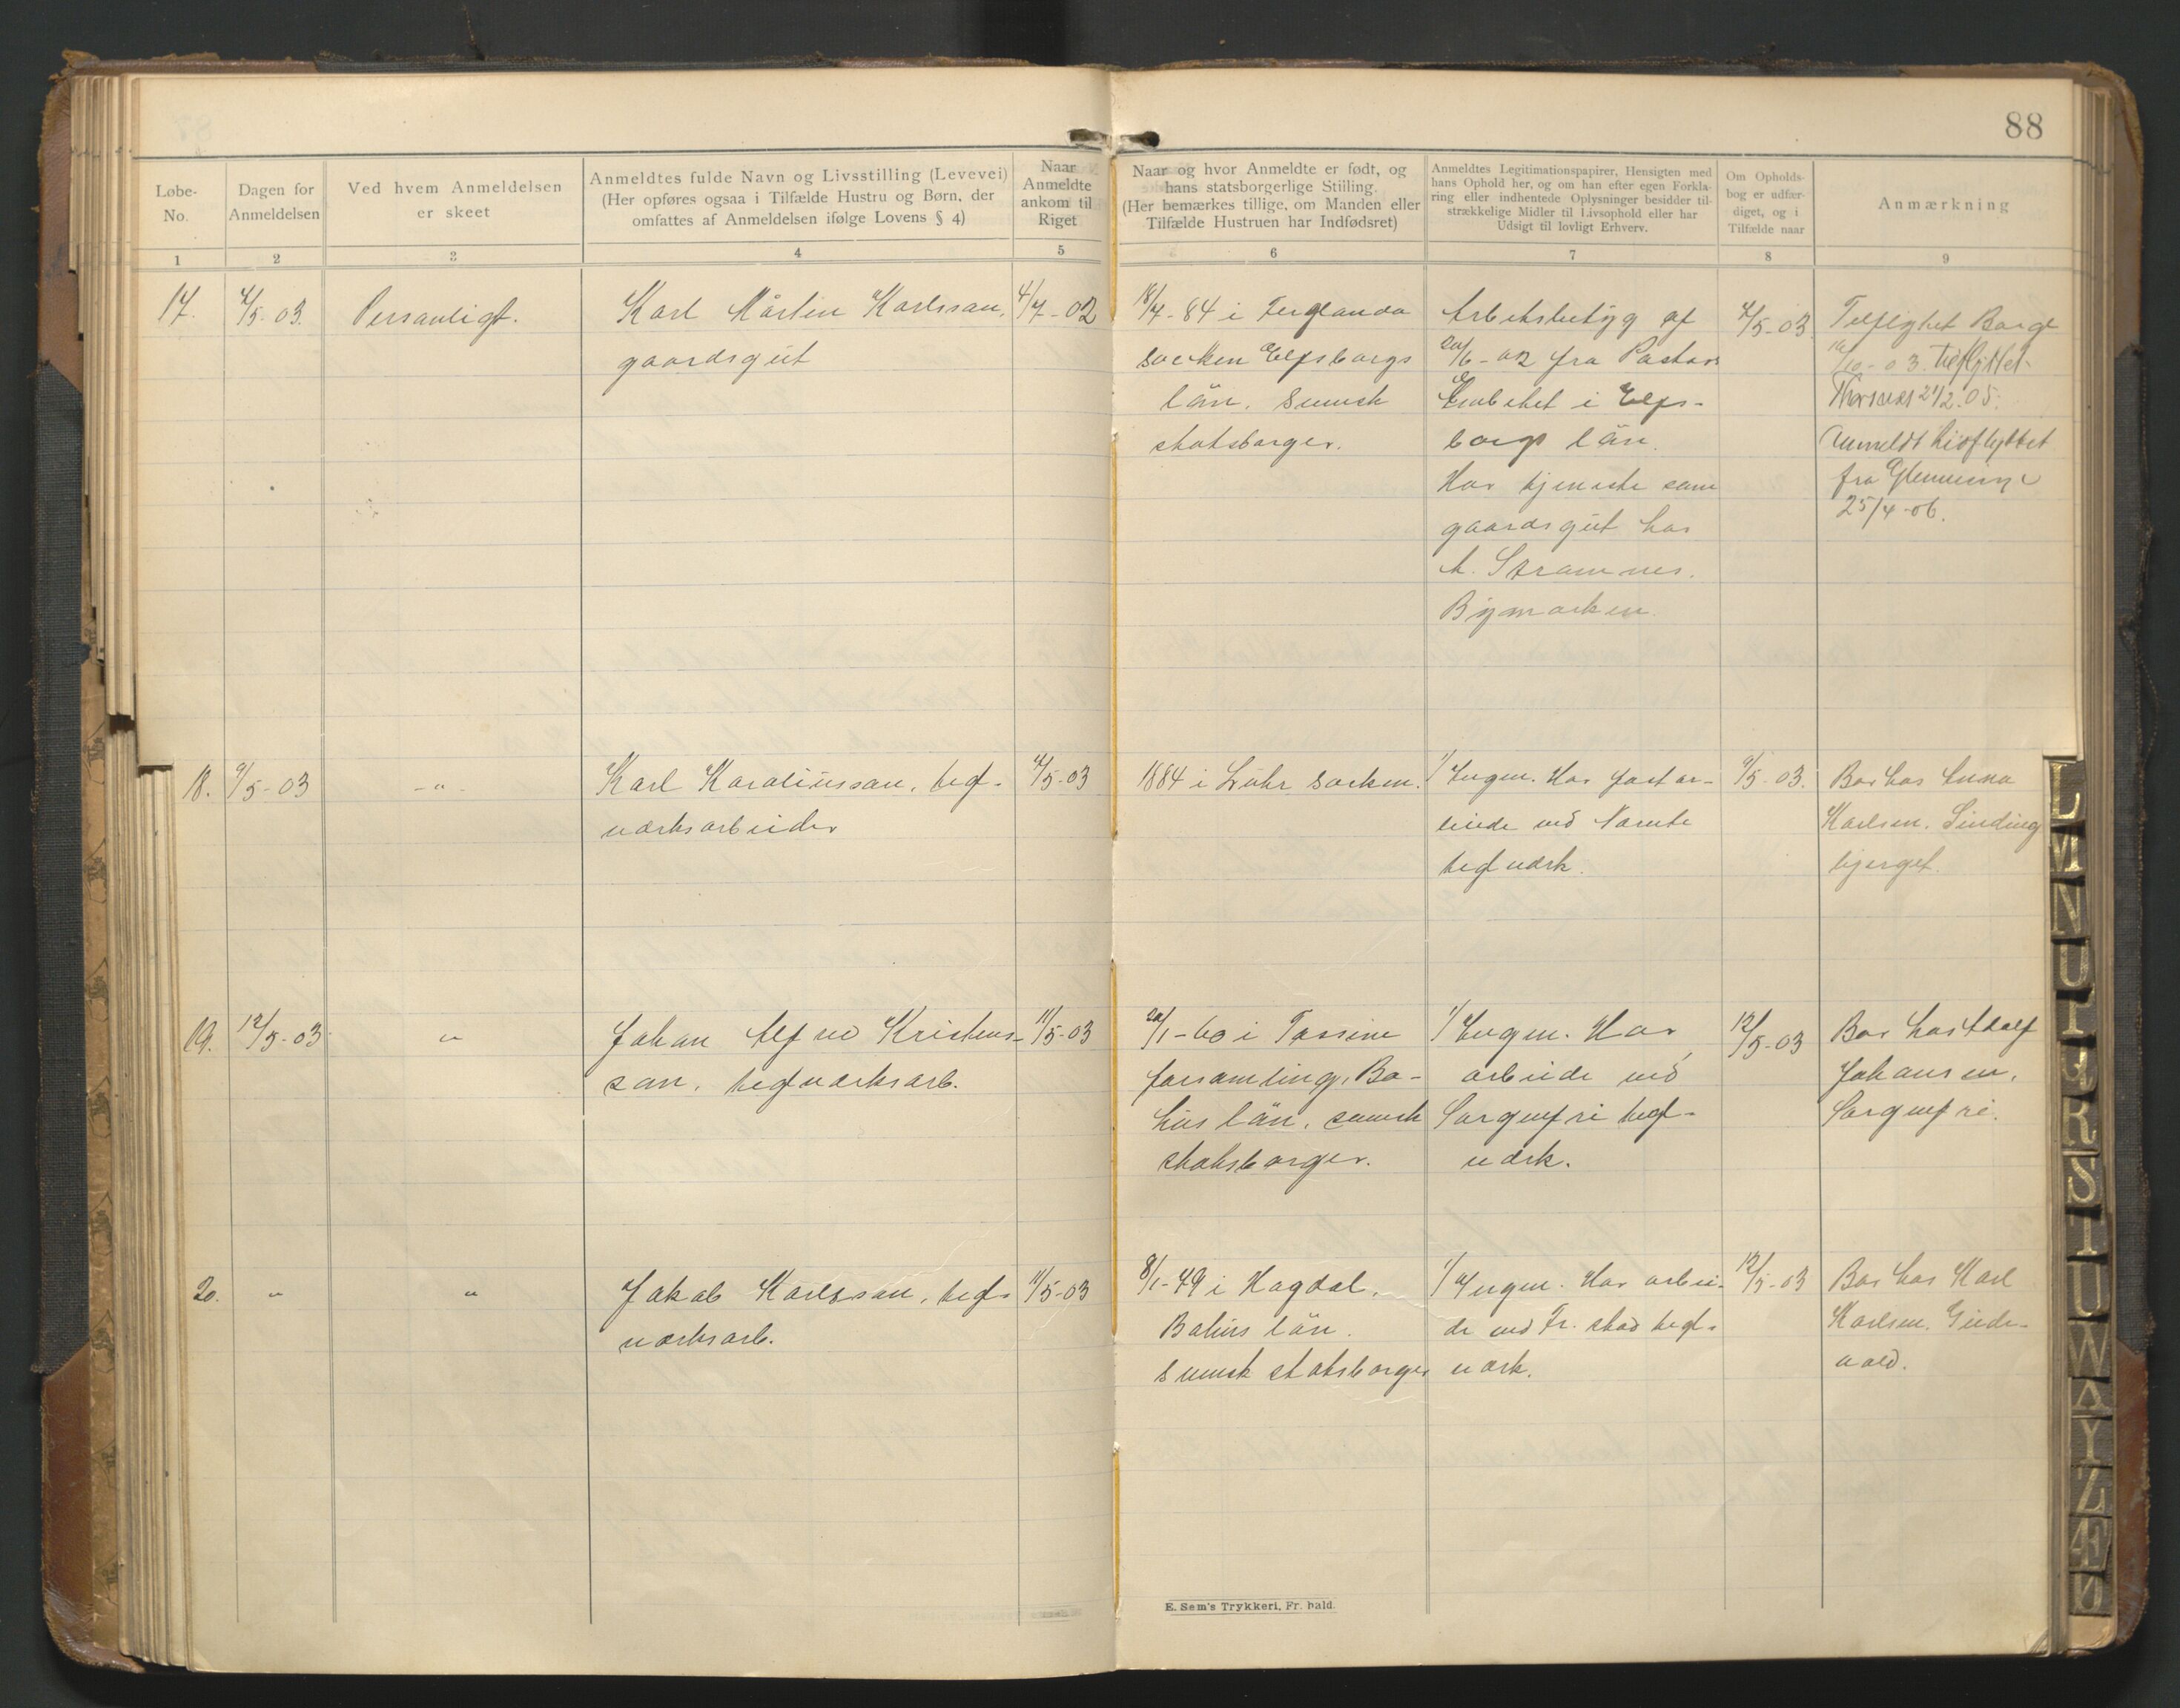 88
Løbe-
No.
Dagen for
Anmeldelsen
Ved hvem Anmeldelsen
er skeet
Anmeldtes fulde Navn og Livsstilling (Levevei)
(Her opføres ogsaa i Tilfælde Hustru og Børn, der
omfattes af Anmeldelsen ifølge Lovens § 4)
Naar
Anmeldte
ankom til
Riget
Naar og hvor Anmeldte er født, og
hans statsborgerlige Stilling.
(Her bemærkes tillige, om Manden eller
Tilfælde Hustruen har Indfødsret)
Anmeldtes Legitimationspapirer, Hensigten med
hans Ophold her, og om han efter egen Forkla-
ring eller indhentede Oplysninger besidder til-
strækkelige Midler til Livsophold eller har
Udsigt til lovligt Erhverv.
Om Opholds-
bog er udfær-
diget, og i
Tilfælde naar
Anmærkning
1 2 3 4 5 6 7 8 9
17.
7/5-03.
Personligt.
Karl Mårten Karlsson,
gaardsgut
4/7-02
18/7-84 i Ferglanda
socken Elfsborgs
län. Svensk
statsborger.
Arbetsbetyg af
20/6-02 fra Pastors
Embetet i Elfs-
borgs län.
Har tjeneste som
gaardsgut hos
A. Strømnes.
Bymarken.
7/5-03.
Tilflyttet Borge
/10-03. tilflyttet
21/2.05.
Anmeldt hidflyttet
fra Glemminge
25/4-06.
18.
9/5-03
-"-
Karl Karoliusson, tegl-
værksarbeider
7/5-03
1884 i Luhr socken.
1/ Ingen. Har fast ar-
beide ved Narnte
teglværk.
9/5-03.
Bor hos Anna
Karlsen. Sinding
bjerget.
19.
12/5-03
"
Johan Alfred Kristens-
son, teglværksarb.
11/5-03
20/1-60 i Tossene
forsamling, Bo-
hus län, svensk
statsborger.
1/ Ingen. Har
arbeide ved
Sorgenfri tegl-
værk.
12/5-03
Bor hos Adolf
Johansen,
Sorgenfri.
20.
"
"
Jakob Karlsson, tegl-
værksarb.
11/5-03
8/1-49 i Hogdal,
Bohus län.
Svensk statsborger
1/ Ingen. Har arbei-
de ved Fr.stad tegl-
værk.
12/5-03
Bor hos Karl
Karlsen. Gude-
vold.
E. Sem's Trykkeri, Fr. hald.
L
M
N
O
P
R
S
T
U
W
Y
Z
Æ
Ø